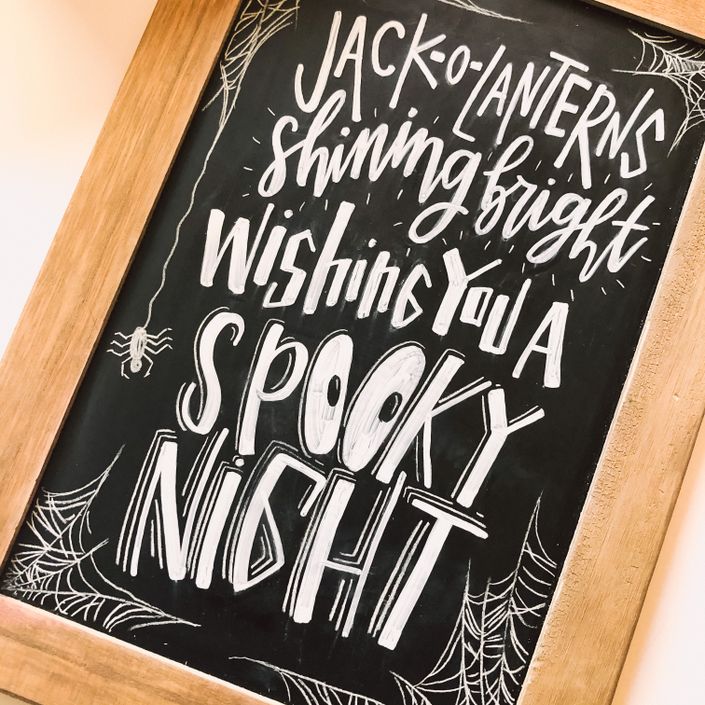 JACK-O-LANTERNS
shining bright
WiSHiNG YOU A
SPOOKY
NiGHT